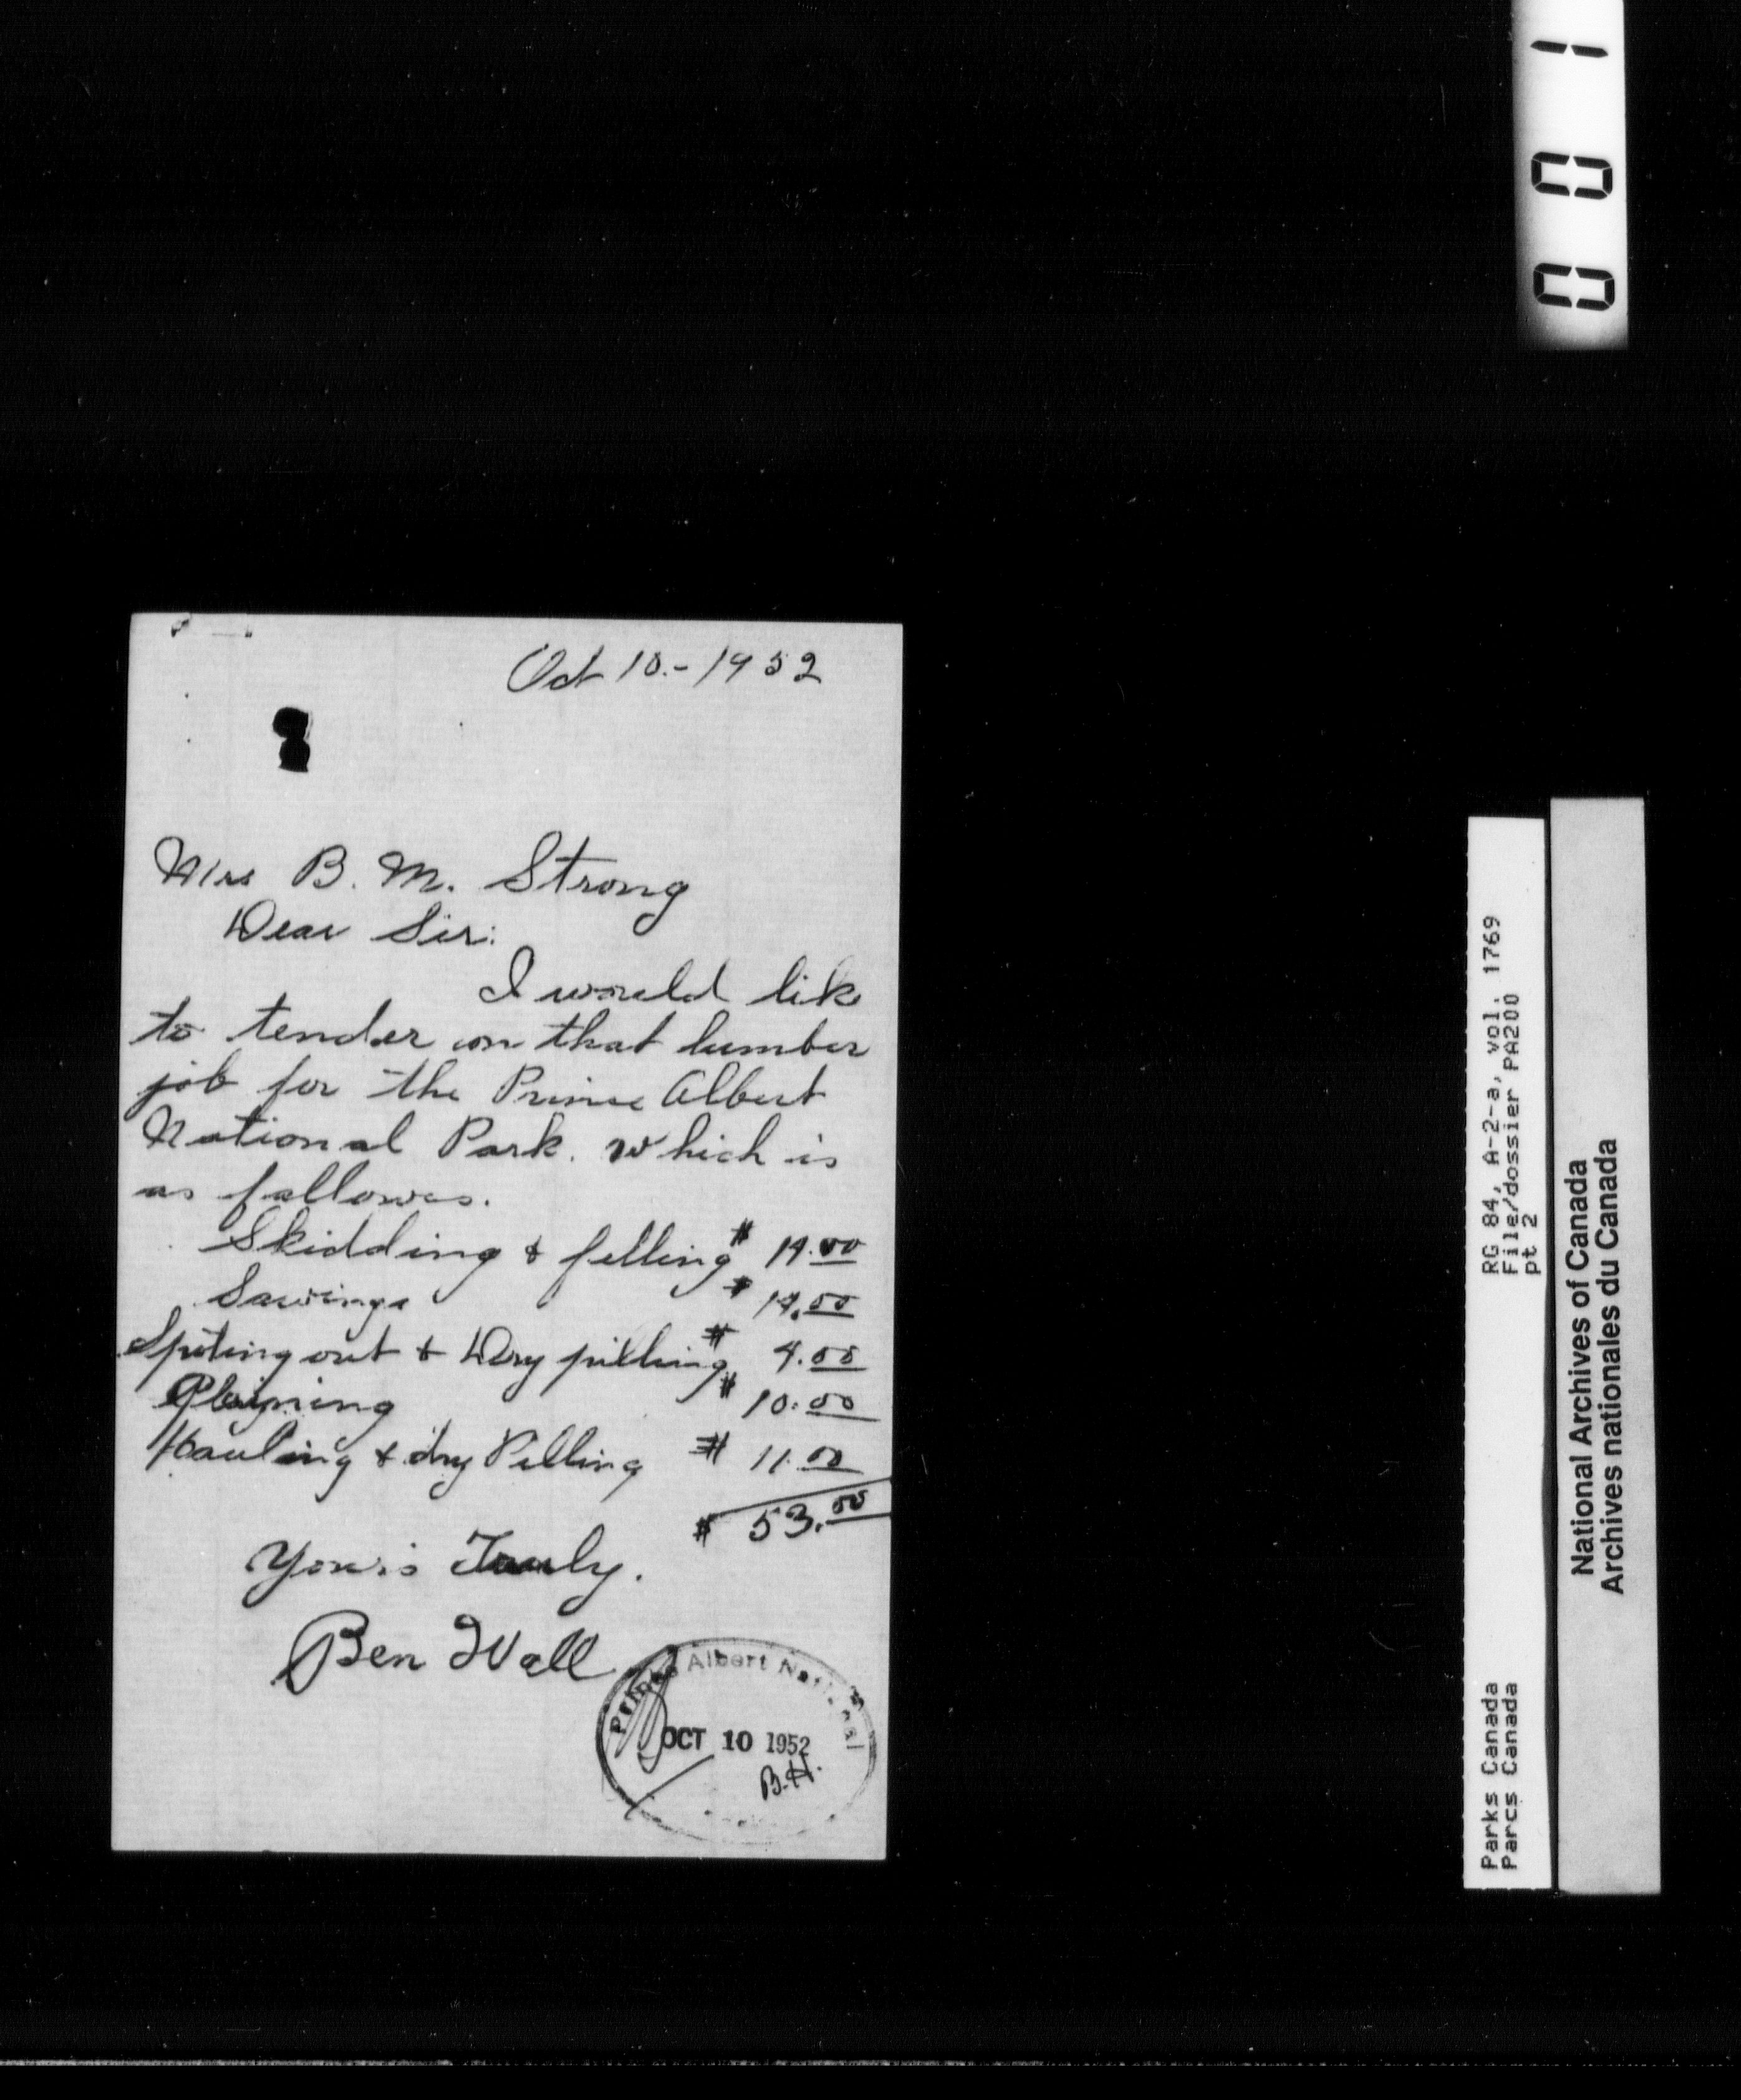 001
Oct 10.-1952
Mrs B. M. Strong
Dear Sir:
I would like
to tender on that lumber
job for the Prince Albert
National Park. which is
as fallowes.
Skidding & felling $ 14.00
Sawinge $ 14.00
Spoting out & Dry pilling $ 4.00
Plaining $ 10.00
Hauling & dry Pilling $ 11.00
$ 53.00
Your's Truly.
Ben Wall
Prince Albert National
OCT 10 1952
B.H.
RG 84, A-2-a, vol. 1769
File/dossier PA200
pt 2
Parks Canada
Parcs Canada
National Archives of Canada
Archives nationales du Canada